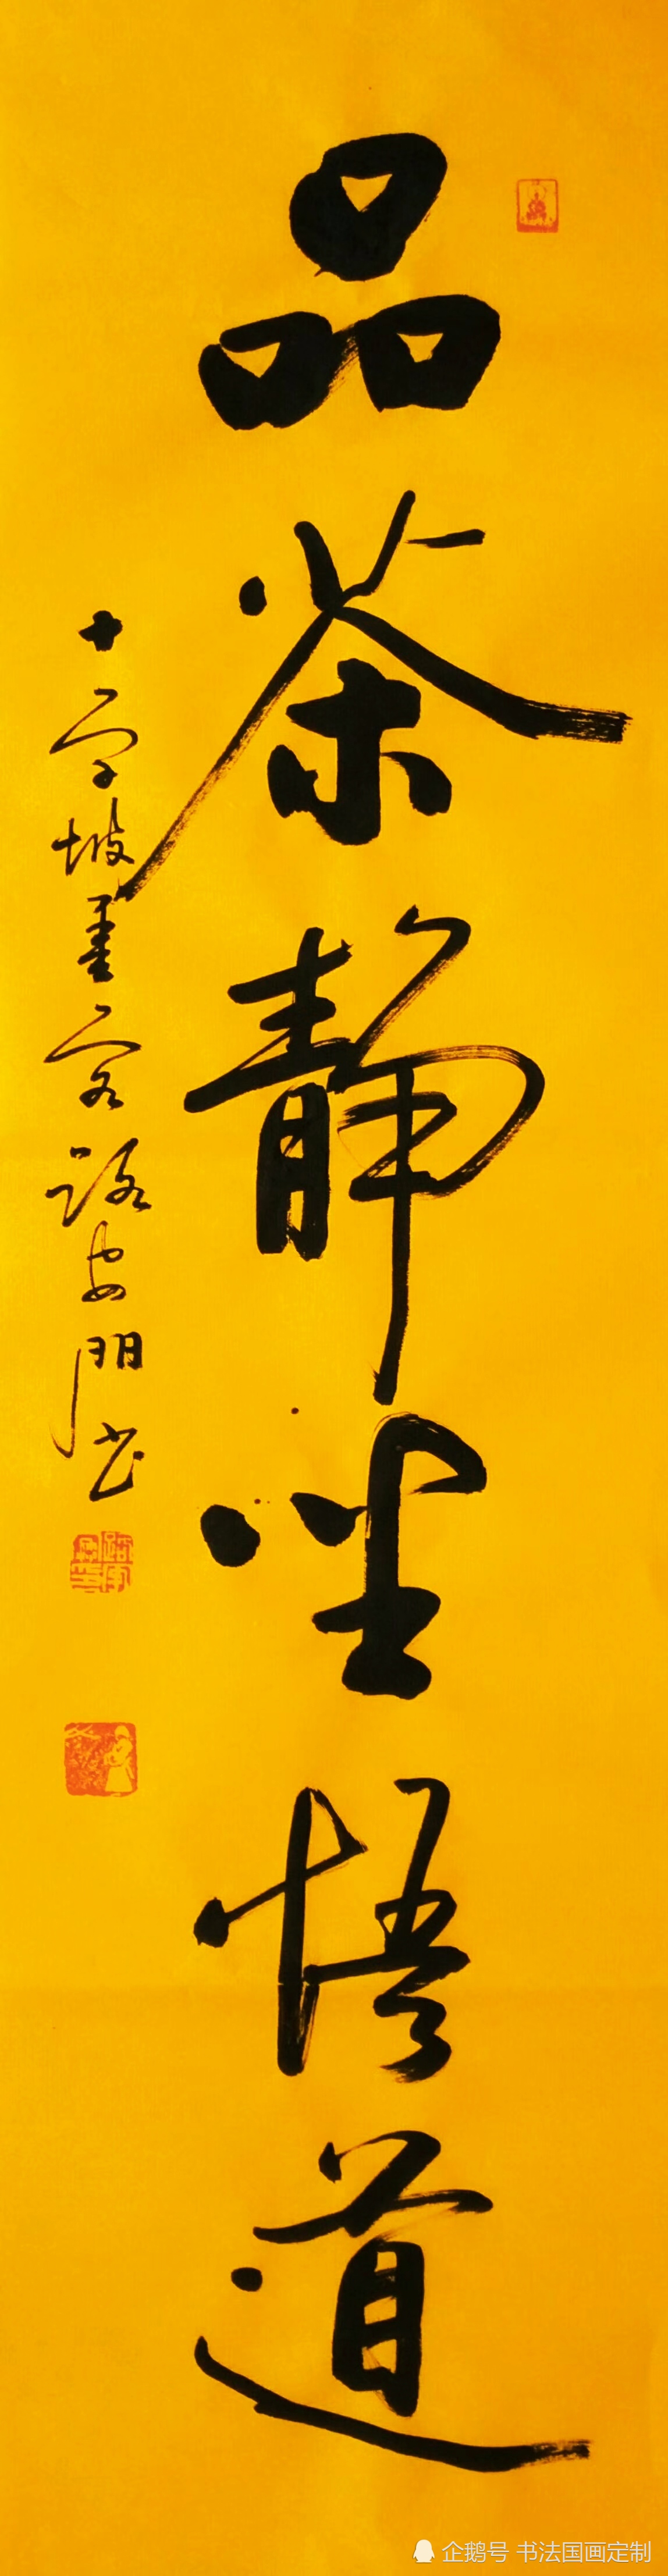 品茶静坐悟道
十字坡墨客路安門书
企鹅号 书法国画定制